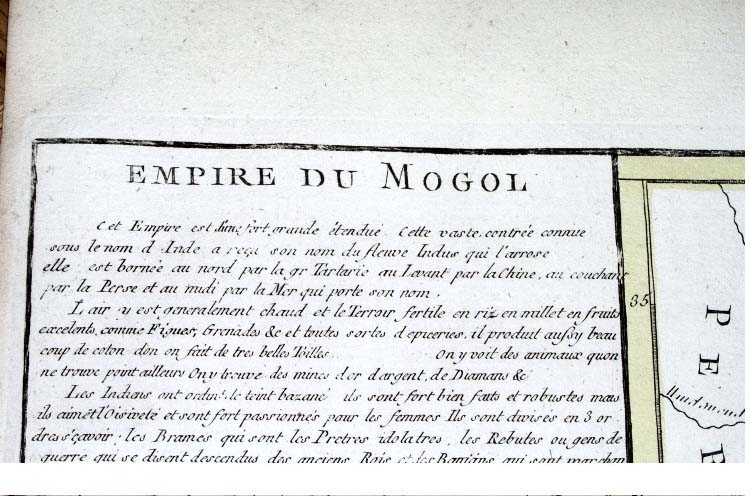 EMPIRE DU MOGOL
Cet Empire est d'une fort grande étendue Cette vaste contrée connue
sous le nom d Inde a reçu son nom du fleuve Indus qui l'arrose
elle est bornée au nord par la gr Tartarie au Levant par la Chine, au couchant
par la Perse et au midi par la Mer qui porte son nom.
L air y est generalement chaud et le Terroir fertile en riz en millet en fruits
excelents, comme Figues, Grenades &c et toutes sortes d'epiceries, il produit aussy beau
coup de coton don on fait de tres belles Toilles On y voit des animaux quon
ne trouve point ailleurs On y trouve des mines d'or d'argent, de Diamans &
Les Indiens ont ordin.t le teint bazané ils sont fort bien faits et robustes mais
ils aimêt l'Oisiveté et sont fort passionnés pour les femmes Ils sont divisés en 3 or
dres sçavoir; les Brames qui sont les Pretres idolatres, les Rebutes ou gens de
guerre qui se disent descendus des anciens Rois et les Banians qui sont marchan
35
P
E